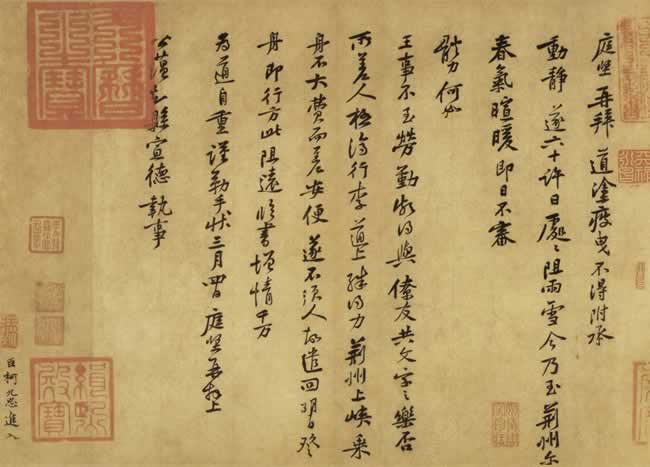 庭堅再拜道塗疲曳不得附承
動靜遂六十許日處〻阻雨雪今乃至荊州尔
春氣暄暖即日不審
體力何如
王事不至勞勤頗得與僚友共文字之樂否
所差人極濟行李道上殊得力荊州上峽乘
舟不大費而差安便遂不須人故遣回明日登
舟即行方此阻遠臨書增情千万
為道自重謹勒手狀三月四日庭堅再拜上
公蘊知縣宣德執事
臣柯九思進入
緝熙殿寶